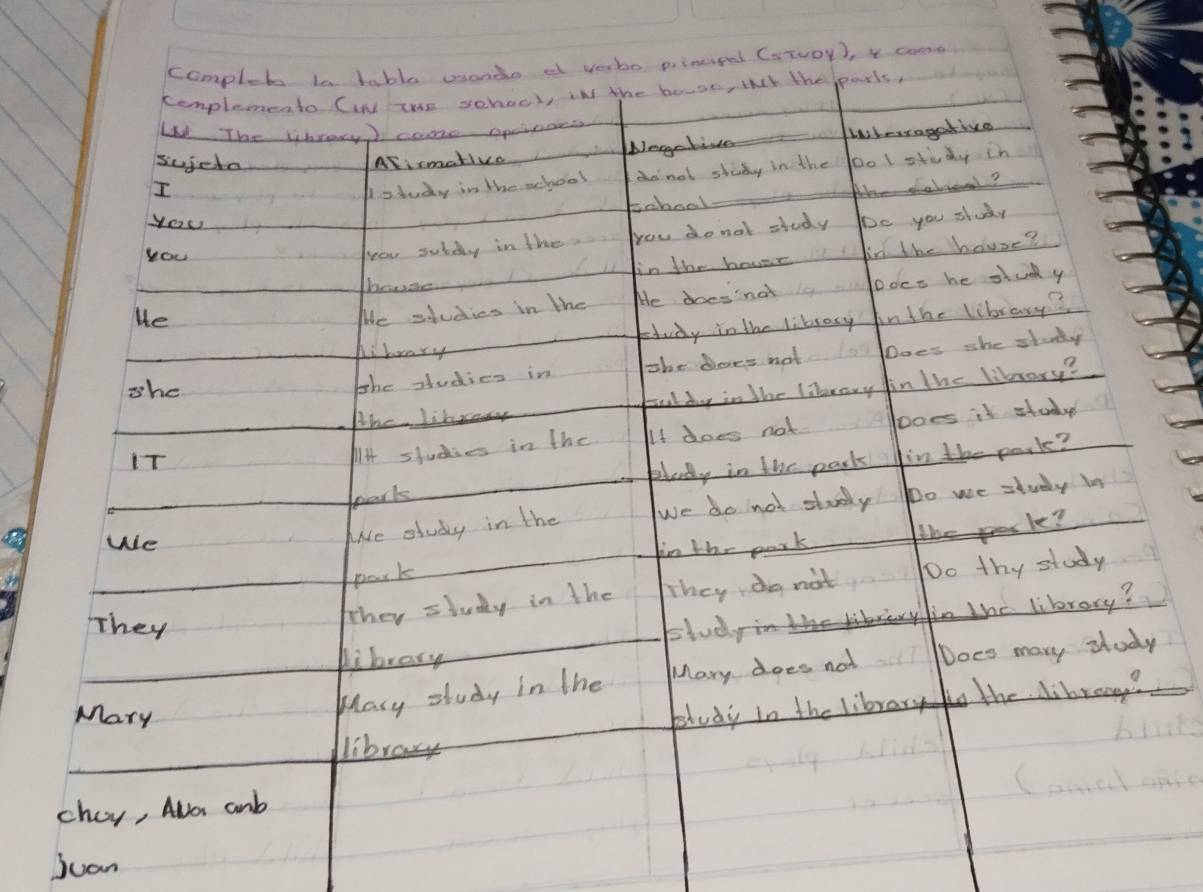 Completa la tabla usando el verbo principal (STUDY), y como
complemento (IN THE school, IN the house, IN the park,
IN The library) como opciones
Sujeto Afirmative Negative Interrogative
I I study in the school I do not study in the school Do I study in the school?
You
You You sutdy in the house You do not study in the house Do you study in the house?
He He studies in the library He does not study in the library Does he study in the library?
She She studies in the library She does not sutdy in the library Does she study in the library?
IT It studies in the park It does not study in the park Does it study in the park?
We We study in the park We do not study in the park Do we study in the park?
They They study in the library They do not study in the library Do thy study in the library?
Mary Mary study in the library Mary does not study in the library Does mary study in the library?
anb
Juan